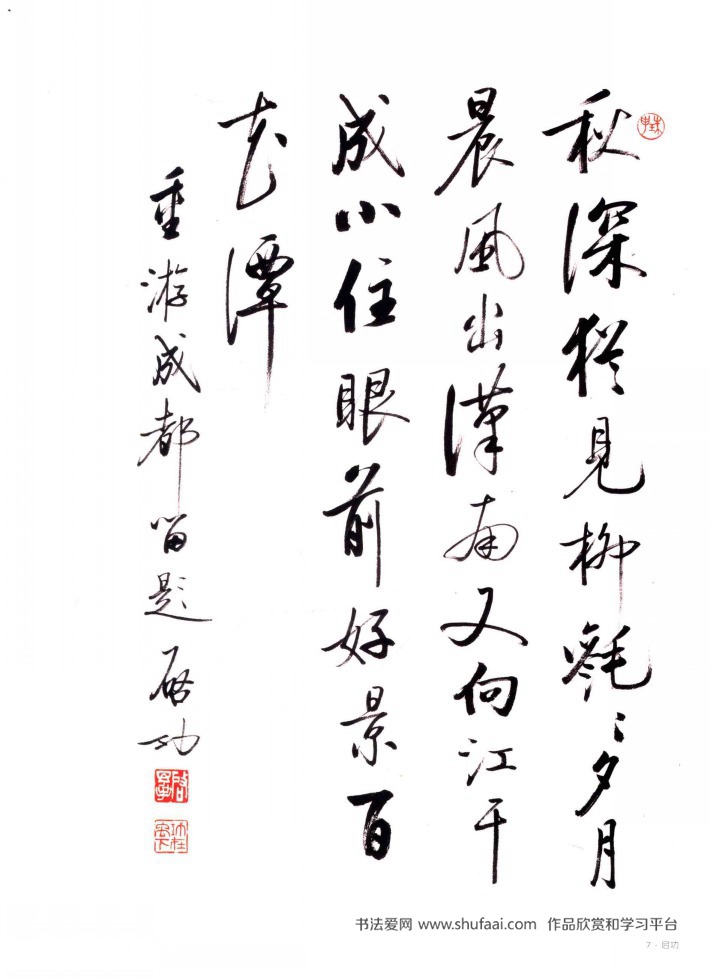 秋深犹見柳毿〻夕月
晨風出漢南又向江干
成小住眼前好景百
花潭
重游成都留題 啓功
書法爱网 www.shufaai.com 作品欣赏和学习平台
7 · 启功